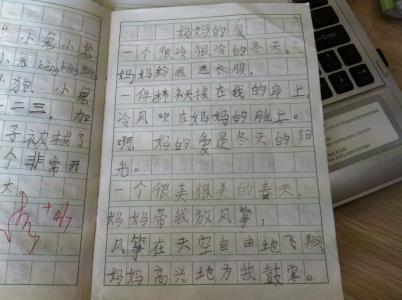 小
小狗 小
二三,加
子被拔了
个非常开
大
妈妈的爱
一个很冷很冷的冬天,
妈妈给我送衣服,
一件在我的身上,
冷风吹在妈妈的脸上。
啊,妈的爱是冬天的阳
光。
一个很美很美的春天,
妈妈带我放风筝,
风筝在天空自由地飞翔
妈妈高兴地为我鼓掌。